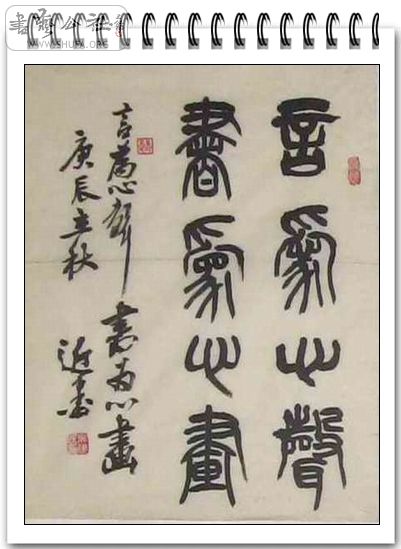 言為心聲
書為心畫
言為心聲 書為心畫
庚辰立秋
近春
書艺公社
WWW.SHUFA.ORG